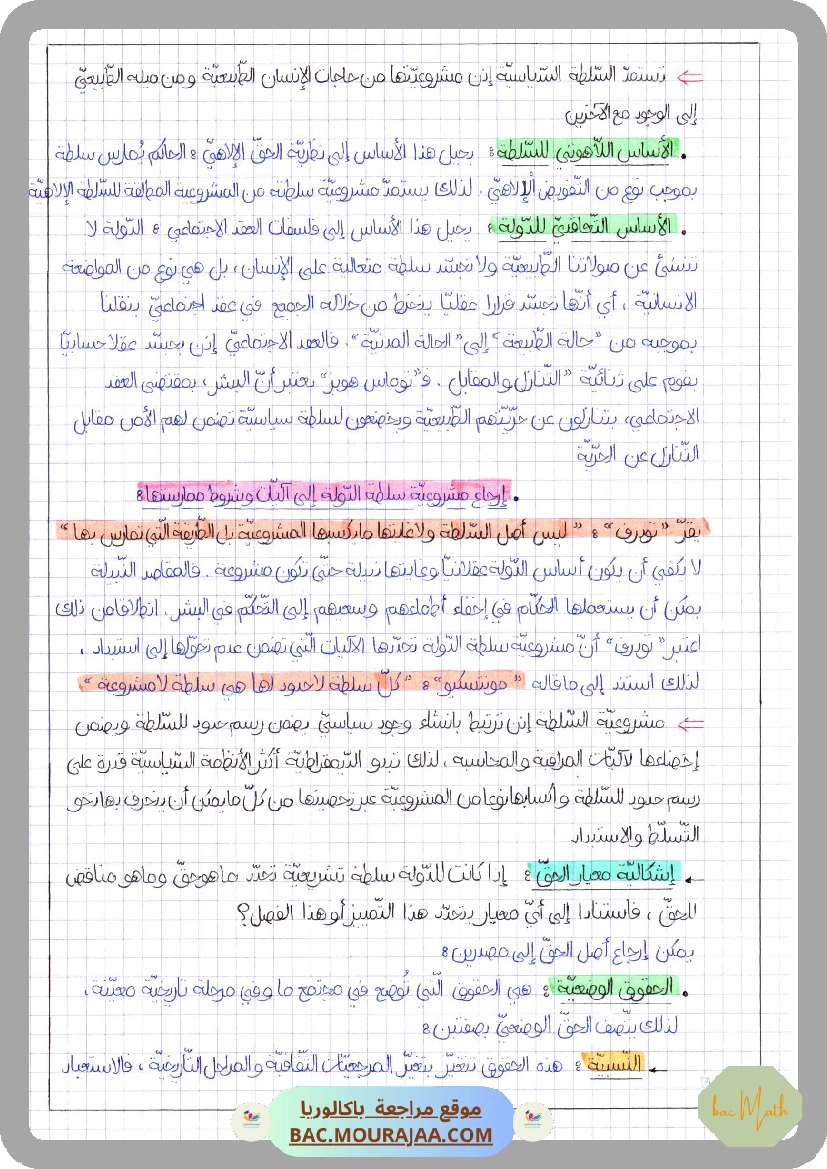 ⇐ تستمدّ السّلطة السّياسيّة إذن مشروعيّتها من حاجات الإنسان الطّبيعيّة ومن ميله الطّبيعيّ
إلى الوجود مع الآخرين
• الأساس اللّاهوتي للسّلطة : يحيل هذا الأساس إلى نظريّة الحقّ الإلاهيّ : الحاكم يُمارس سلطة
بموجب نوع من التّفويض الإلاهيّ . لذلك يستمدّ مشروعيّة سلطته من المشروعية المطلقة للسّلطة الإلاهيّة
• الأساس التّعاقديّ للدّولة : يحيل هذا الأساس إلى فلسفات العقد الاجتماعي : الدّولة لا
تنشئ عن ميولاتنا الطّبيعيّة ولا تجسّد سلطة متعالية على الإنسان ، بل هي نوع من المواضعة
الانسانيّة ، أي أنّها تجسّد قرارا عقليّا ينخرط من خلاله الجميع في عقد اجتماعيّ ينقلنا
بموجبه من "حالة الطّبيعة" إلى "الحالة المدنيّة". فالعقد الاجتماعيّ إذن يجسّد عقلا حسابيّا
يقوم على ثنائيّة "التّنازل والمقابل . فـ"توماس هوبز" يعتبر أنّ البشر ، بمقتضى العقد
الاجتماعي، يتنازلون عن حرّيّتهم الطّبيعيّة ويخضعون لسلطة سياسيّة تضمن لهم الأمن مقابل
التّنازل عن الحرّيّة
• إرجاع مشروعيّة سلطة الدّولة إلى آليّات وشروط ممارستها :
يقرّ "تودرف" : "ليس أصل السّلطة ولا غايتها ما يكسبها المشروعيّة بل الطّريقة الّتي تمارس بها"
لا يكفي أن يكون أساس الدّولة عقلانيّا وغايتها نبيلة حتّى تكون مشروعة . فالمقاصد النّبيلة
يمكن أن يستعملها الحكّام في إخفاء أطماعهم وسعيهم إلى التّحكّم في البشر . انطلاقا من ذلك
اعتبر "تودرف" أنّ مشروعيّة سلطة الدّولة تحدّدها الآليات الّتي تضمن عدم تحوّلها إلى استبداد ،
لذلك استند إلى ما قاله "مونتسكيو" : "كلّ سلطة لا حدود لها هي سلطة لا مشروعة"
⇐ مشروعيّة السّلطة إذن ترتبط بانشاء وجود سياسيّ يضمن رسم حدود للسّلطة ويضمن
إخضاعها لآليّات المراقبة والمحاسبة ، لذلك تبدو الدّيمقراطيّة أكثر الأنظمة السّياسيّة قدرة على
رسم حدود للسّلطة واكسابها نوعا من المشروعيّة عبر تحصينها من كلّ ما يمكن أن ينحرف بها نحو
التّسلّط والاستبداد
إشكاليّة معيار الحقّ : إذا كانت للدّولة سلطة تشريعيّة تحدّد ما هو حقّ وما هو مناقض
للحقّ ، فاستنادا إلى أيّ معيار يتحدّد هذا التّمييز أو هذا الفصل؟
يمكن إرجاع أصل الحقّ إلى مصدرين :
• الحقوق الوضعيّة : هي الحقوق الّتي تُوضع في مجتمع ما وفي مرحلة تاريخيّة معيّنة ،
لذلك يتّصف الحقّ الوضعيّ بصفتين :
النّسبيّة : هذه الحقوق تتغيّر بتغيّر المرجعيّات الثّقافيّة والمراحل التّاريخيّة ، فالاستعباد
موقع مراجعة باكالوريا
BAC.MOURAJAA.COM
bac Math